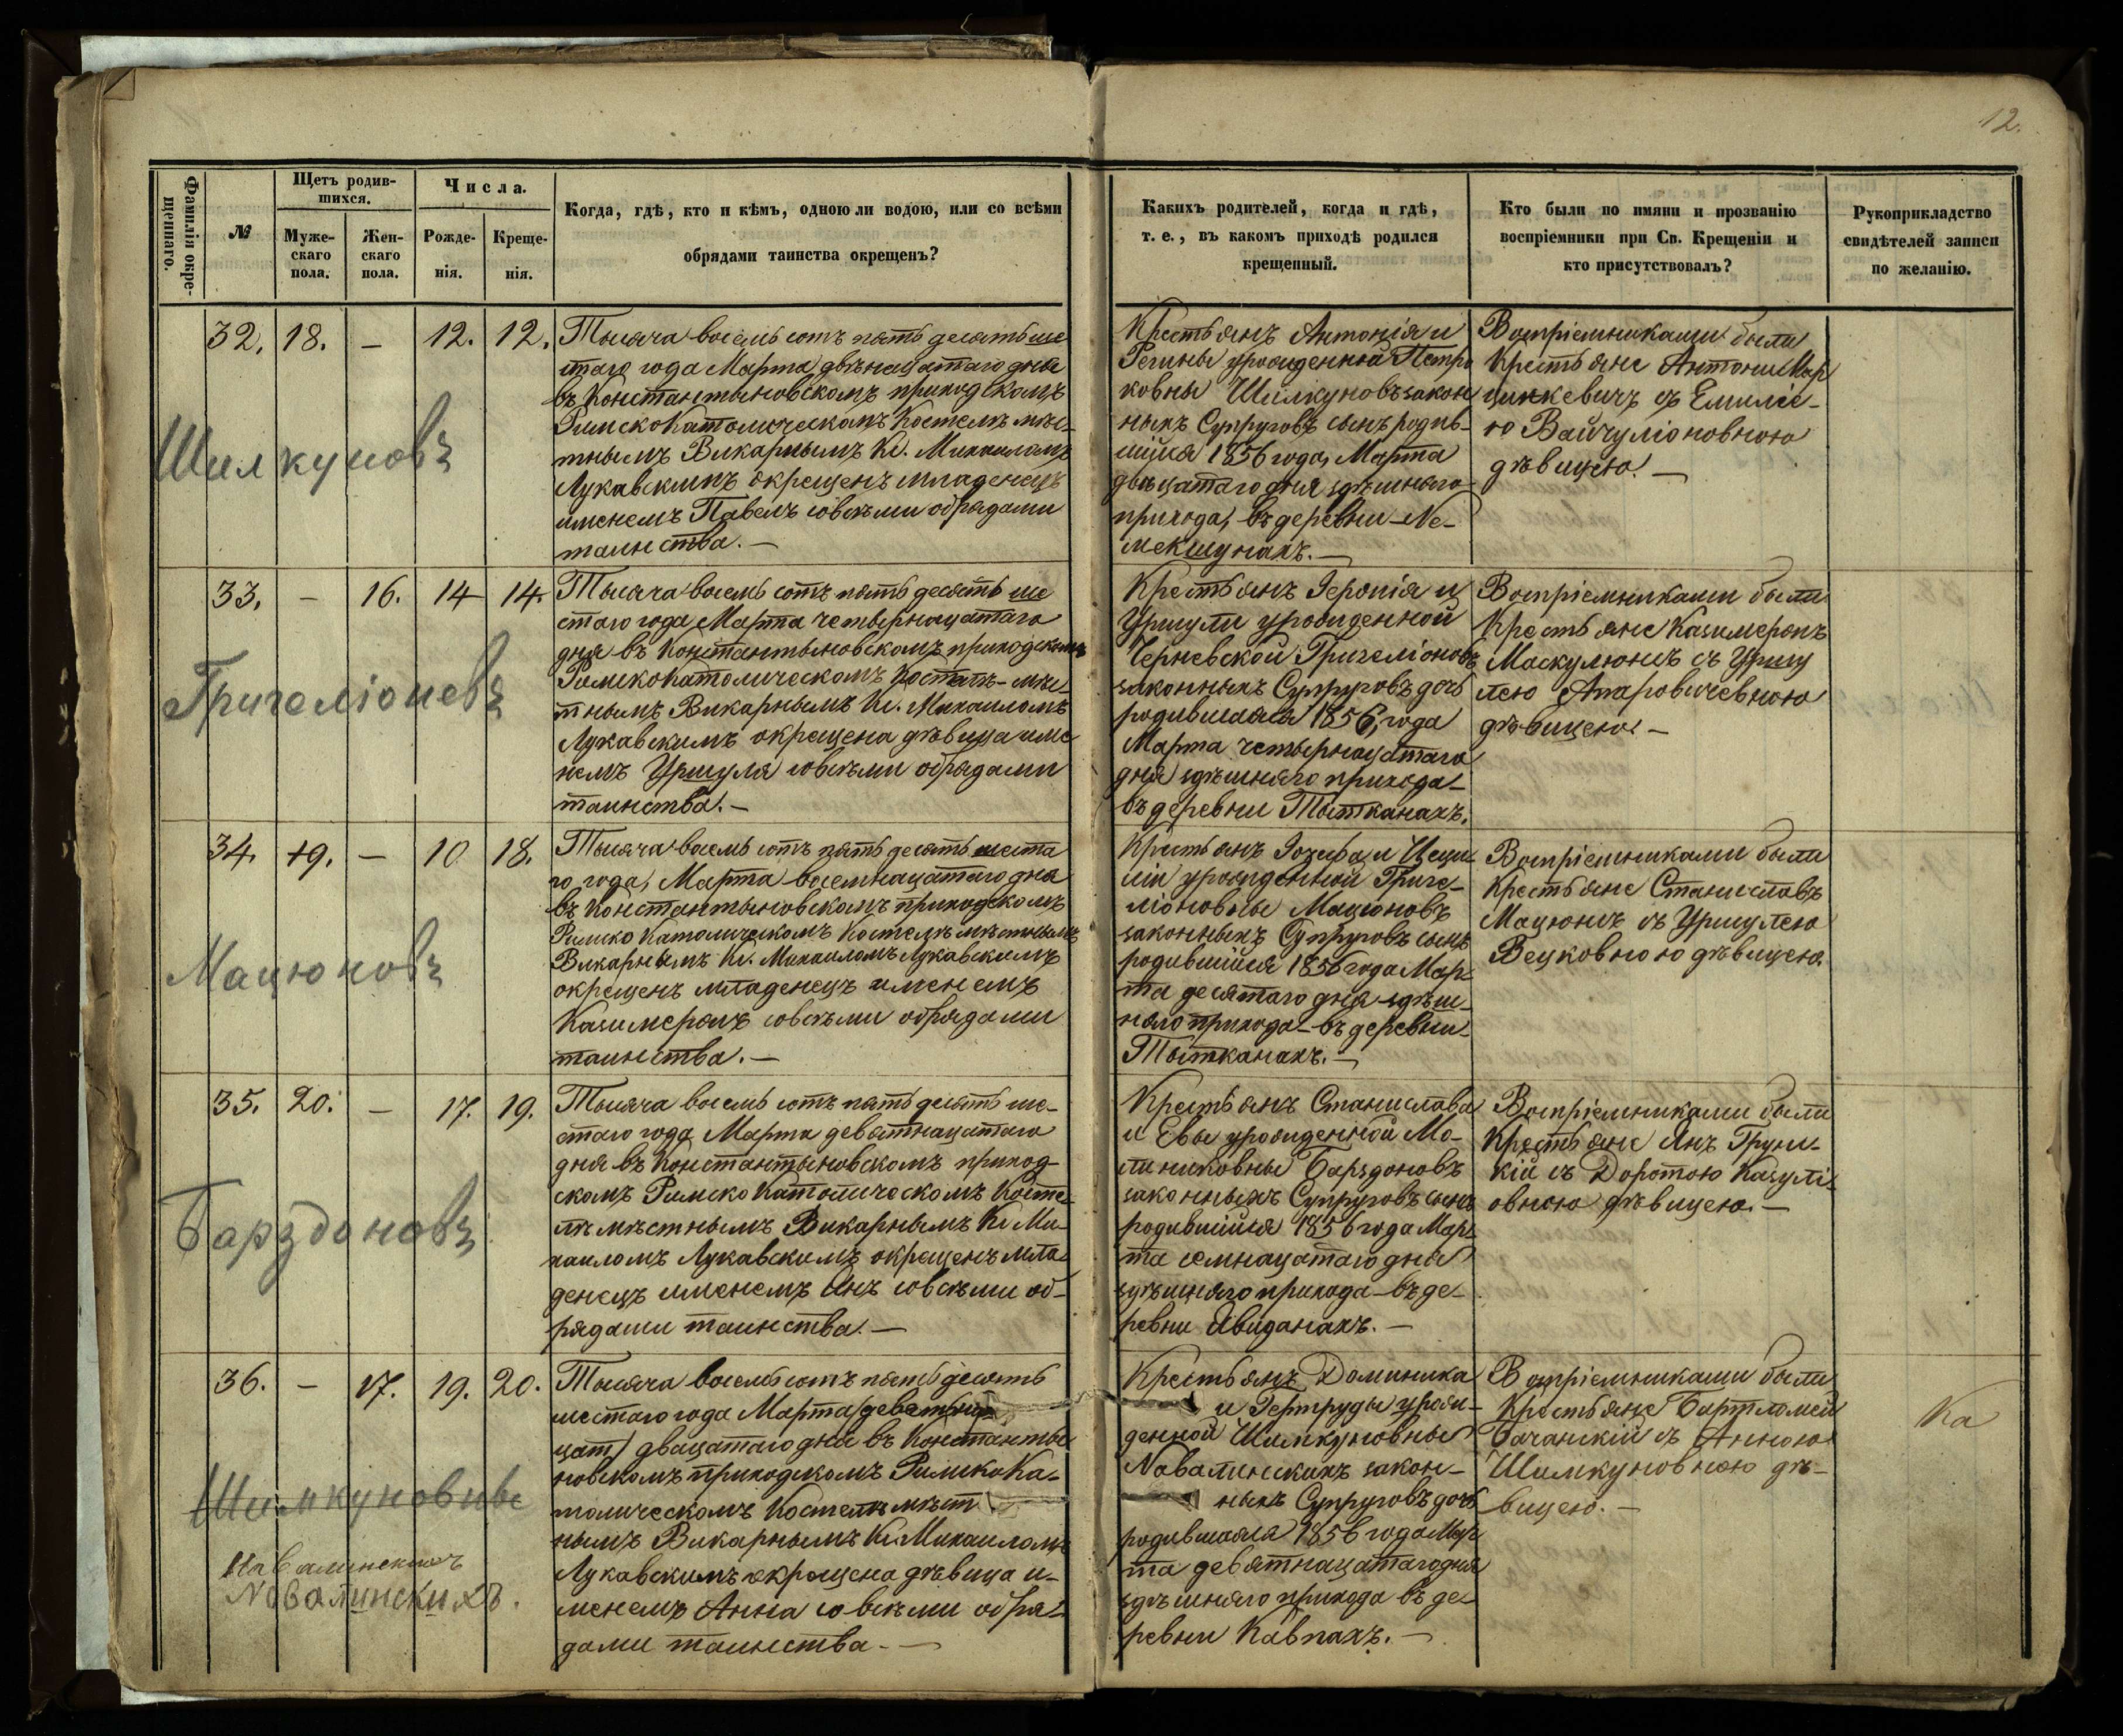 12.
Фамиліи окре-
щеннаго.
№
Щетъ родив-
шихся.
Муже-
скаго
пола.
Жен-
скаго
пола.
Числа.
Рожде-
нія.
Креще-
нія.
Когда, гдѣ, кто и кѣмъ, одною ли водою, или со всѣми
обрядами таинства окрещенъ?
Какихъ родителей, когда и гдѣ,
т. е., въ какомъ приходѣ родился
крещенный.
Кто были по имяни и прозванію
воспріемники при Св. Крещеніи и
кто присутствовалъ?
Рукоприкладство
свидѣтелей записи
по желанію.
Шилкуновъ
32. 18. – 12. 12.
Тысяча восемь сотъ пять десять ше
стаго года Марта двѣнацатаго дня
въ Константыновскомъ приходскомъ
Римско Католическомъ Костелѣ мѣс-
тнымъ Викарнымъ Кс. Михаиломъ
Лукавскимъ окрещенъ младенецъ
именемъ Павелъ совсѣми обрядами
таинства. –
Крестьянъ Антонія и
Регины урожденной Петро
ковны Шилкуновъ закон
ныхъ Супруговъ сынъ родив-
шійся 1856 года, Марта
двѣнцатаго дня здѣшняго
прихода, въ деревни Не-
мекшунахъ. –
Воспріемниками были
Крестьяне Антони Мар
цинкевичъ съ Емилі-
ю Вайчуліоновною
дѣвицею. –
Григеліоновъ
33. – 16. 14 14.
Тысяча восемь сотъ пять десять ше
стаго года Марта четырнацатаго
дня въ Константыновскомъ приходскомъ
Римско Католическомъ Костелѣ мѣс-
тнымъ Викарнымъ Кс. Михаиломъ
Лукавскимъ окрещена дѣвица име
немъ Уршуля совсѣми обрядами
таинства. –
Крестьянъ Іеронія и
Уршули урожденной
Черневской Григеліоновъ
законныхъ Супруговъ дочь
родившаяся 1856, года
Марта четырнацатаго
дня здѣшняго прихода
въ деревни Тытканахъ.
Воспріемниками были
Крестьяне Казимеръ
Маскулюнъ съ Уршу
лею Апаровичевною
дѣвицею. –
Мацюновъ
34. 19. – 10 18.
Тысяча восемь сотъ пять десять шеста
го года, Марта восемнацатаго дня
въ Константыновскомъ приходскомъ
Римско Католическомъ Костелѣ мѣстнымъ
Викарнымъ Кс. Михаиломъ Лукавскимъ
окрещенъ младенецъ именемъ
Казимеръ совсѣми обрядами
таинства. –
Крестьянъ Іозефа и Цеци-
ліи урожденной Григе-
ліоновны Мацюновъ
законныхъ Супруговъ сынъ
родившійся 1856 года Мар-
та десятаго дня здѣш-
няго прихода въ деревни
Тытканахъ. –
Воспріемниками были
Крестьяне Станиславъ
Мацюнъ съ Уршулею
Вецковною дѣвицею.
Барздоновъ
35. 20. – 17. 19.
Тысяча восемь сотъ пять десять ше-
стаго года Марта девятнацатаго
дня въ Константыновскомъ приход-
скомъ Римско Католическомъ Косте-
лѣ мѣстнымъ Викарнымъ Кс Ми-
хаиломъ Лукавскимъ окрещенъ мла
денецъ именемъ Янъ совсѣми об-
рядами таинства. –
Крестьянъ Станислава
и Евы урожденной Ма-
линиковны Барздоновъ
законныхъ Супруговъ сынъ
родившійся 1856 года Мар-
та семнацатаго дня
здѣшняго прихода въ де-
ревни Явиданахъ. –
Воспріемниками были
Крестьяне Янъ Груни-
кій съ Доротою Казулі-
овною дѣвицею. –
Шимкуновны
Навалинскихъ
Навалинскихъ.
36. – 17. 19. 20.
Тысяча восемь сотъ пять десять
шестаго года Марта (девятна
цат) двацатаго дня въ Константы
новскомъ приходскомъ Римско Ка-
толическомъ Костелѣ мѣст
нымъ Викарнымъ Кс. Михаиломъ
Лукавскимъ окрещена дѣвица и-
менемъ Анна совсѣми обря-
дами таинства. –
Крестьянъ Доминика
и Гертруды урож-
денной Шимкуновны
Навалинскихъ закон-
ныхъ Супруговъ дочь
родившаяся 1856 года Мар
та девятнацатаго дня
здѣшняго прихода въ де-
ревни Кавпахъ. –
Воспріемниками были
Крестьяне Бартломей
Бачанскій съ Анною
Шимкуновною дѣ-
вицею. –
Ка